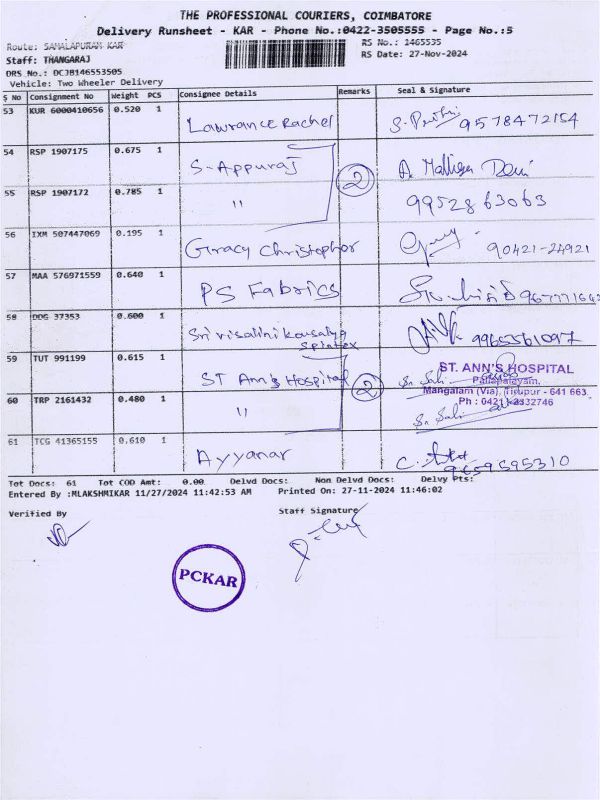 THE PROFESSIONAL COURIERS, COIMBATORE
Delivery Runsheet - KAR - Phone No.:0422-3505555 - Page No.:5
Route: SAMALAPURAM KAR
RS No.: 1465535
Staff: THANGARAJ
RS Date: 27-Nov-2024
DRS No.: DCJB146553505
Vehicle: Two Wheeler Delivery
S No Consignment No Weight PCS Consignee Details Remarks Seal & Signature
53 KUR 6000410656 0.520 1 Lawrance Rachel 9578472154
54 RSP 1907175 0.675 1 S-Appuraj 2 A. Malliga Devi
55 RSP 1907172 0.785 1 " 9952863063
56 IXM 507447069 0.195 1 Gracy Christopher 90421-24921
57 MAA 576971559 0.640 1 PS Fabrics
58 DDG 37353 0.600 1 Srivisalini kousalya spintex
59 TUT 991199 0.615 1 ST Ann's Hospital 2
ST. ANN'S HOSPITAL
Pallapalayam,
Mangalam (Via), Tirupur - 641 663.
Ph : 0421 - 2332746
60 TRP 2161432 0.480 1 "
61 TCG 41365155 0.610 1 Ayyanar 9659595310
Tot Docs: 61 Tot COD Amt: 0.00 Delvd Docs: Non Delvd Docs: Delvy Pts:
Entered By :MLAKSHMIKAR 11/27/2024 11:42:53 AM Printed On: 27-11-2024 11:46:02
Verified By
Staff Signature
PCKAR